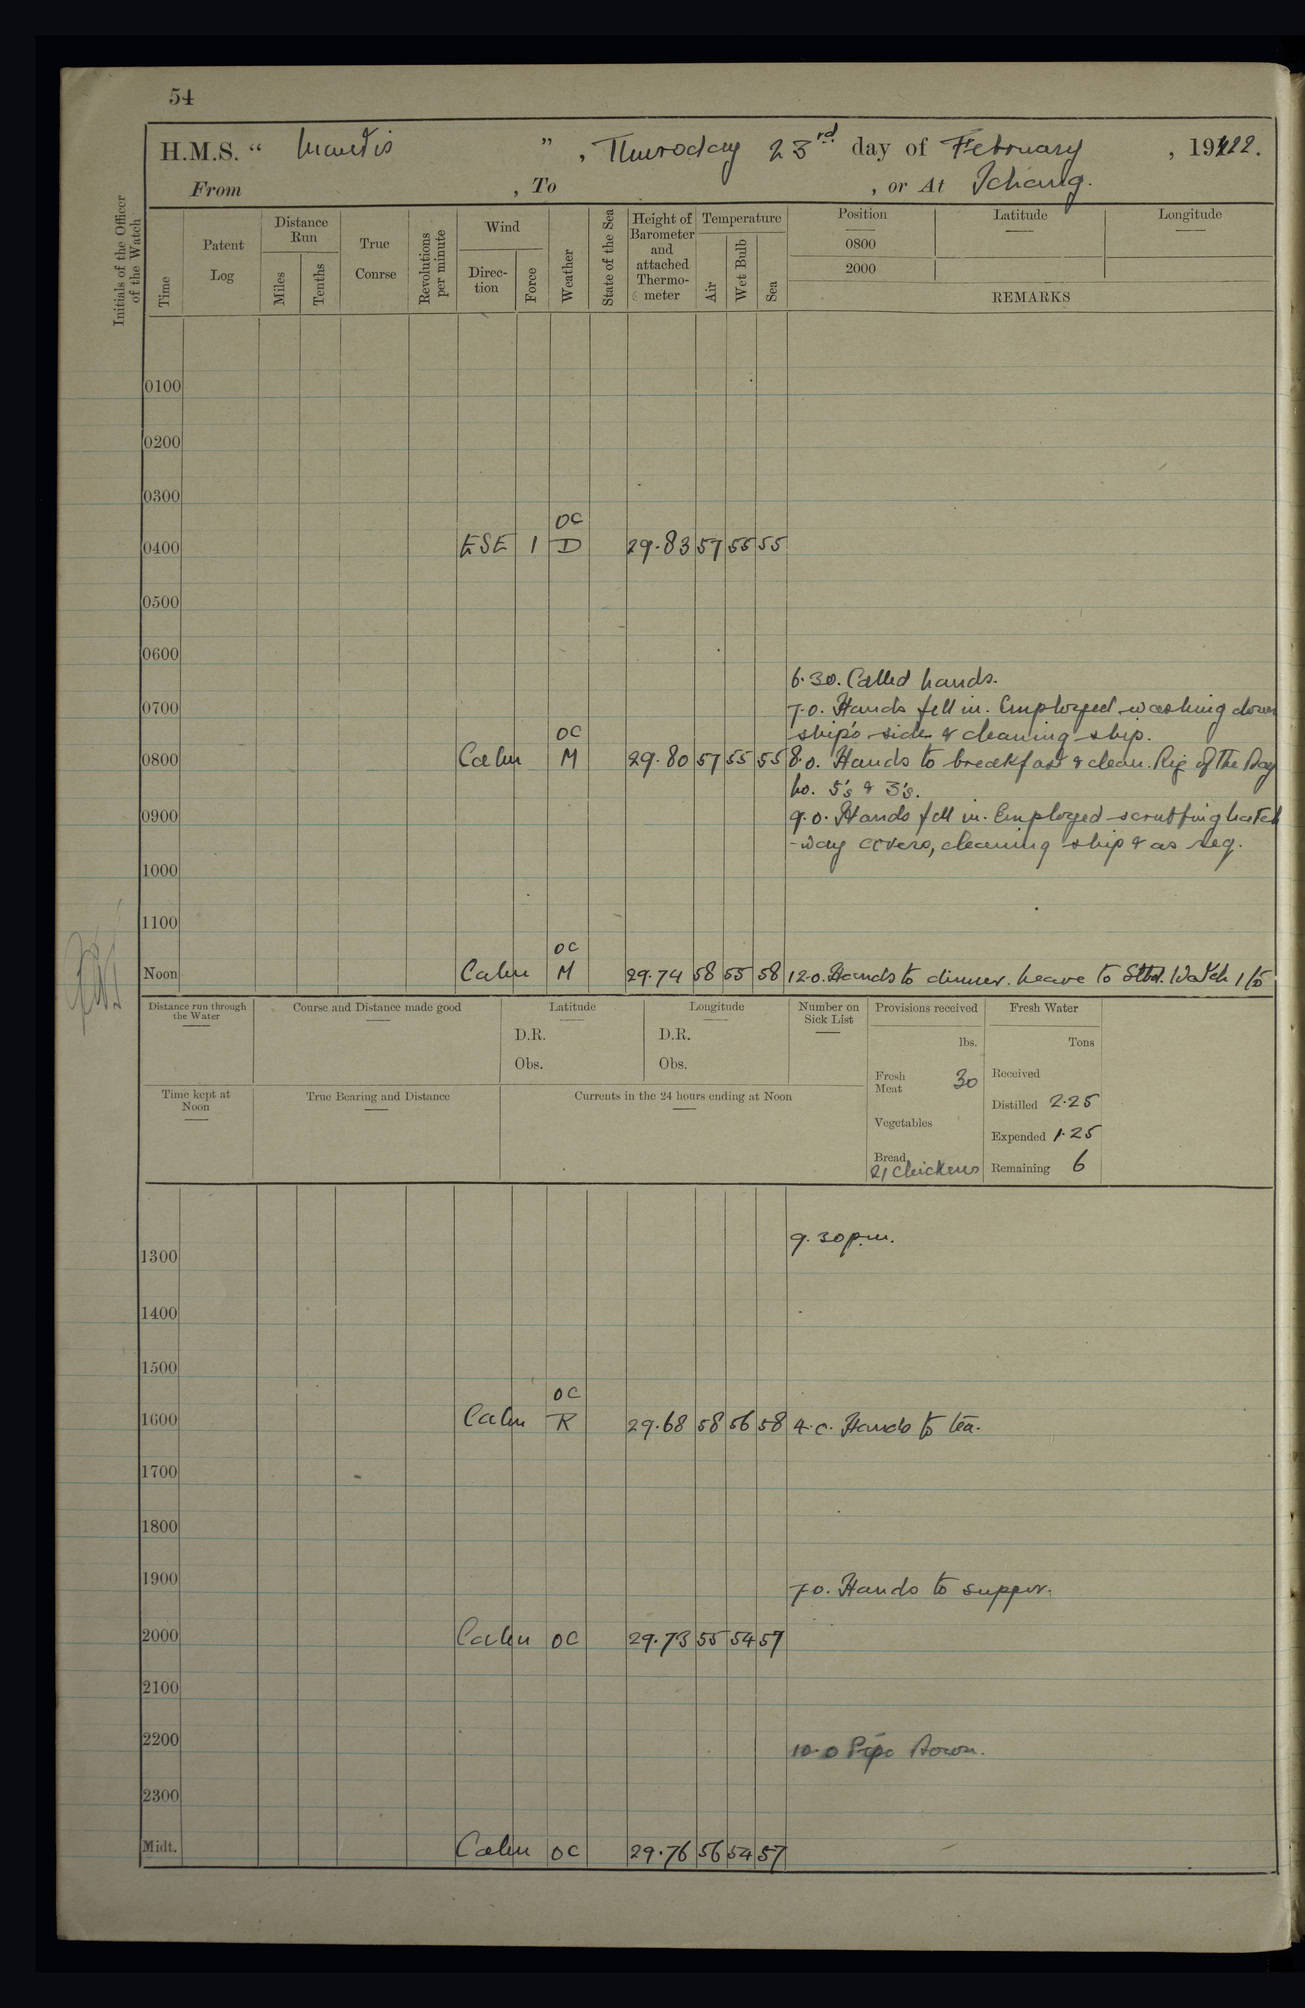 54
H.M.S. “ Mantis ” , Thursday 23rd day of February , 1922.
From , To , or At Ichang.
Initials of the Officer of the Watch
Time
Patent Log
Distance Run
Miles
Tenths
True Course
Revolutions per minute
Wind
Direc-tion
Force
Weather
State of the Sea
Height of Barometer and attached Thermo-meter
Temperature
Air
Wet Bulb
Sea
Position Latitude Longitude
0800
2000
REMARKS
0100
0200
0300
OC
0400 ESE 1 D 29.83 57 55 55
0500
0600
6.30. Called hands.
0700 7.0. Hands fell in. Employed washing down
OC ship's side & cleaning ship.
0800 Calm M 29.80 57 55 55 8.0. Hands to breakfast & clean. Rig of the Day
No. 5's & 3's.
0900 9.0. Hands fell in. Employed scrubbing hatch
-way covers, cleaning ship & as req.
1000
1100
OC
Noon Calm M 29.74 58 55 58 12.0. Hands to dinner. Leave to Stbd. Watch 1 to
Distance run through the Water
Course and Distance made good
Latitude
D.R.
Obs.
Longitude
D.R.
Obs.
Number on Sick List
Provisions received
lbs.
Fresh Meat 30
Vegetables
Bread
21 Chickens
Fresh Water
Tons
Received
Distilled 2.25
Expended 1.25
Remaining 6
Time kept at Noon
True Bearing and Distance
Currents in the 24 hours ending at Noon
9.30 p.m.
1300
1400
1500
OC
1600 Calm R 29.68 58 56 58 4.0. Hands to tea.
1700
1800
1900 7.0. Hands to supper.
2000 Calm OC 29.73 55 54 57
2100
2200 10.0 Pipe Down.
2300
Midt. Calm OC 29.76 56 54 57